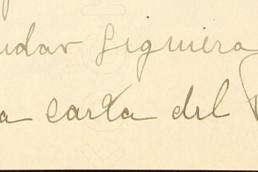 udar siquiera
a carta del